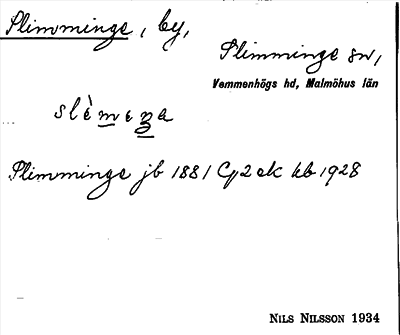 Slimminge, by,
Slimminge sn,
Vemmenhögs hd, Malmöhus län
slèmeŋa
Slimminge jb 1881 Cf2 ek kb 1928
NILS NILSSON 1934